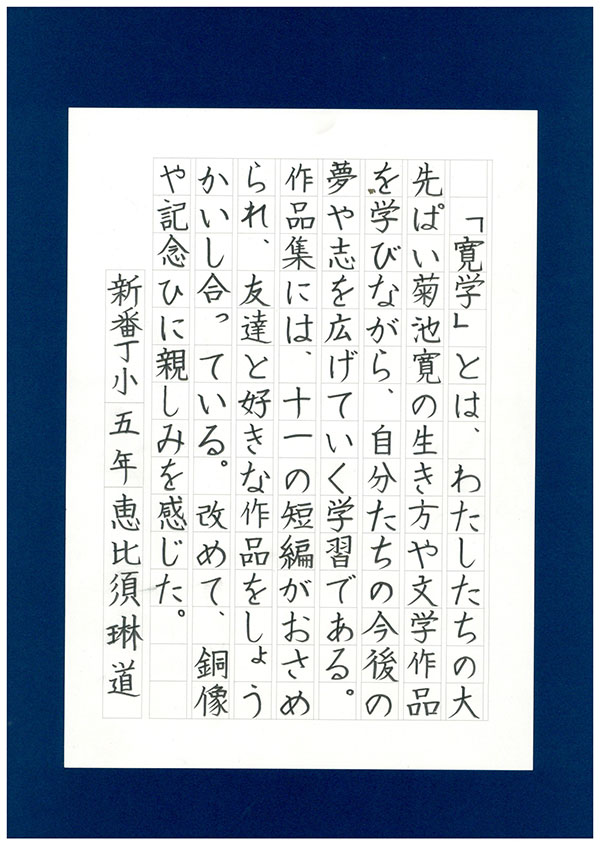 「寛学」とは、わたしたちの大
先ぱい菊池寛の生き方や文学作品
を学びながら、自分たちの今後の
夢や志を広げていく学習である。
作品集には、十一の短編がおさめ
られ、友達と好きな作品をしょう
かいし合っている。改めて、銅像
や記念ひに親しみを感じた。
新番丁小五年恵比須琳道